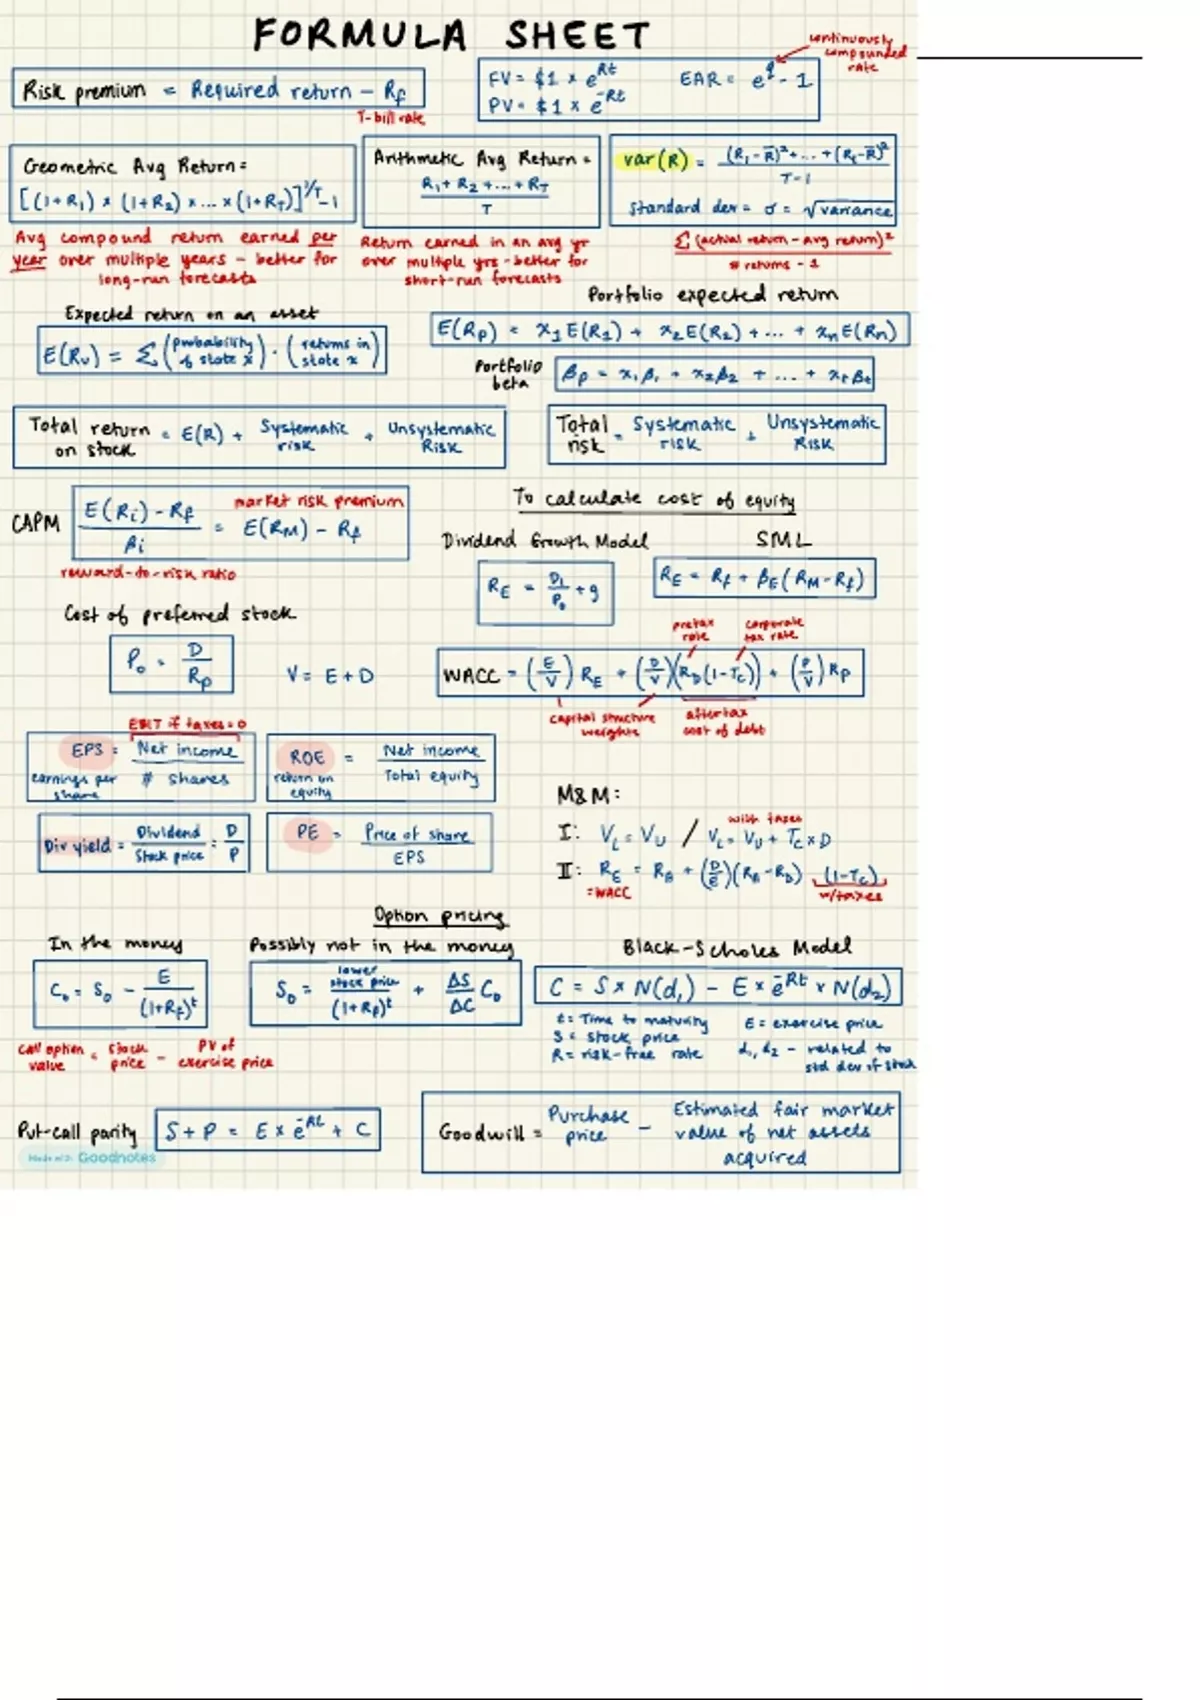 FORMULA SHEET
continuously
compounded
rate
Risk premium = Required return - Rf
T-bill rate
FV = $1 x e^Rt
PV = $1 x e^-Rt
EAR = e^q - 1
Geometric Avg Return =
[(1+R₁) x (1+R₂) x ... x (1+R_T)]^1/T - 1
Avg compound return earned per
year over multiple years - better for
long-run forecasts
Arithmetic Avg Return =
R₁ + R₂ + ... + R_T
T
Return earned in an avg yr
over multiple yrs - better for
short-run forecasts
var(R) = (R₁ - R̄)² + ... + (R_t - R̄)²
T-1
Standard dev = σ = √variance
Σ (actual return - avg return)²
# returns - 1
Expected return on an asset
E(Ru) = Σ (probability of state x) · (returns in state x)
Portfolio expected return
E(Rp) = x₁E(R₁) + x₂E(R₂) + ... + xnE(Rn)
Portfolio
beta
βp = x₁β₁ + x₂β₂ + ... + xtβt
Total return on stock = E(R) + Systematic risk + Unsystematic Risk
Total risk = Systematic risk + Unsystematic Risk
CAPM
E(Ri) - Rf
βi
= E(RM) - Rf
market risk premium
reward-to-risk ratio
To calculate cost of equity
Dividend Growth Model
RE = D₁/P₀ + g
SML
RE = Rf + βE(RM - Rf)
Cost of preferred stock
P₀ = D/Rp
V = E + D
pretax
rate
corporate
tax rate
WACC = (E/V) RE + (D/V)(RD(1-Tc)) + (P/V) Rp
capital structure
weights
aftertax
cost of debt
EBIT if taxes = 0
EPS = Net income
# shares
earnings per
share
ROE = Net income
Total equity
return on
equity
Div yield = Dividend/Stock price = D/P
PE = Price of share
EPS
M&M:
with taxes
I: VL = VU / VL = VU + Tc x D
II: RE = RA + (D/E)(RA - RD) (1-Tc)
= WACC
w/taxes
Option pricing
In the money
C₀ = S₀ - E/(1+Rf)^t
call option value = stock price - PV of exercise price
Possibly not in the money
S₀ = lower stock price/(1+Rf)^t + ΔS/ΔC C₀
Black-Scholes Model
C = S x N(d₁) - E x e^-Rt x N(d₂)
t = Time to maturity
S = stock price
R = risk-free rate
E = exercise price
d₁, d₂ - related to
std dev of stock
Put-call parity
S + P = E x e^-Rt + C
Made with Goodnotes
Goodwill = Purchase price - Estimated fair market value of net assets acquired